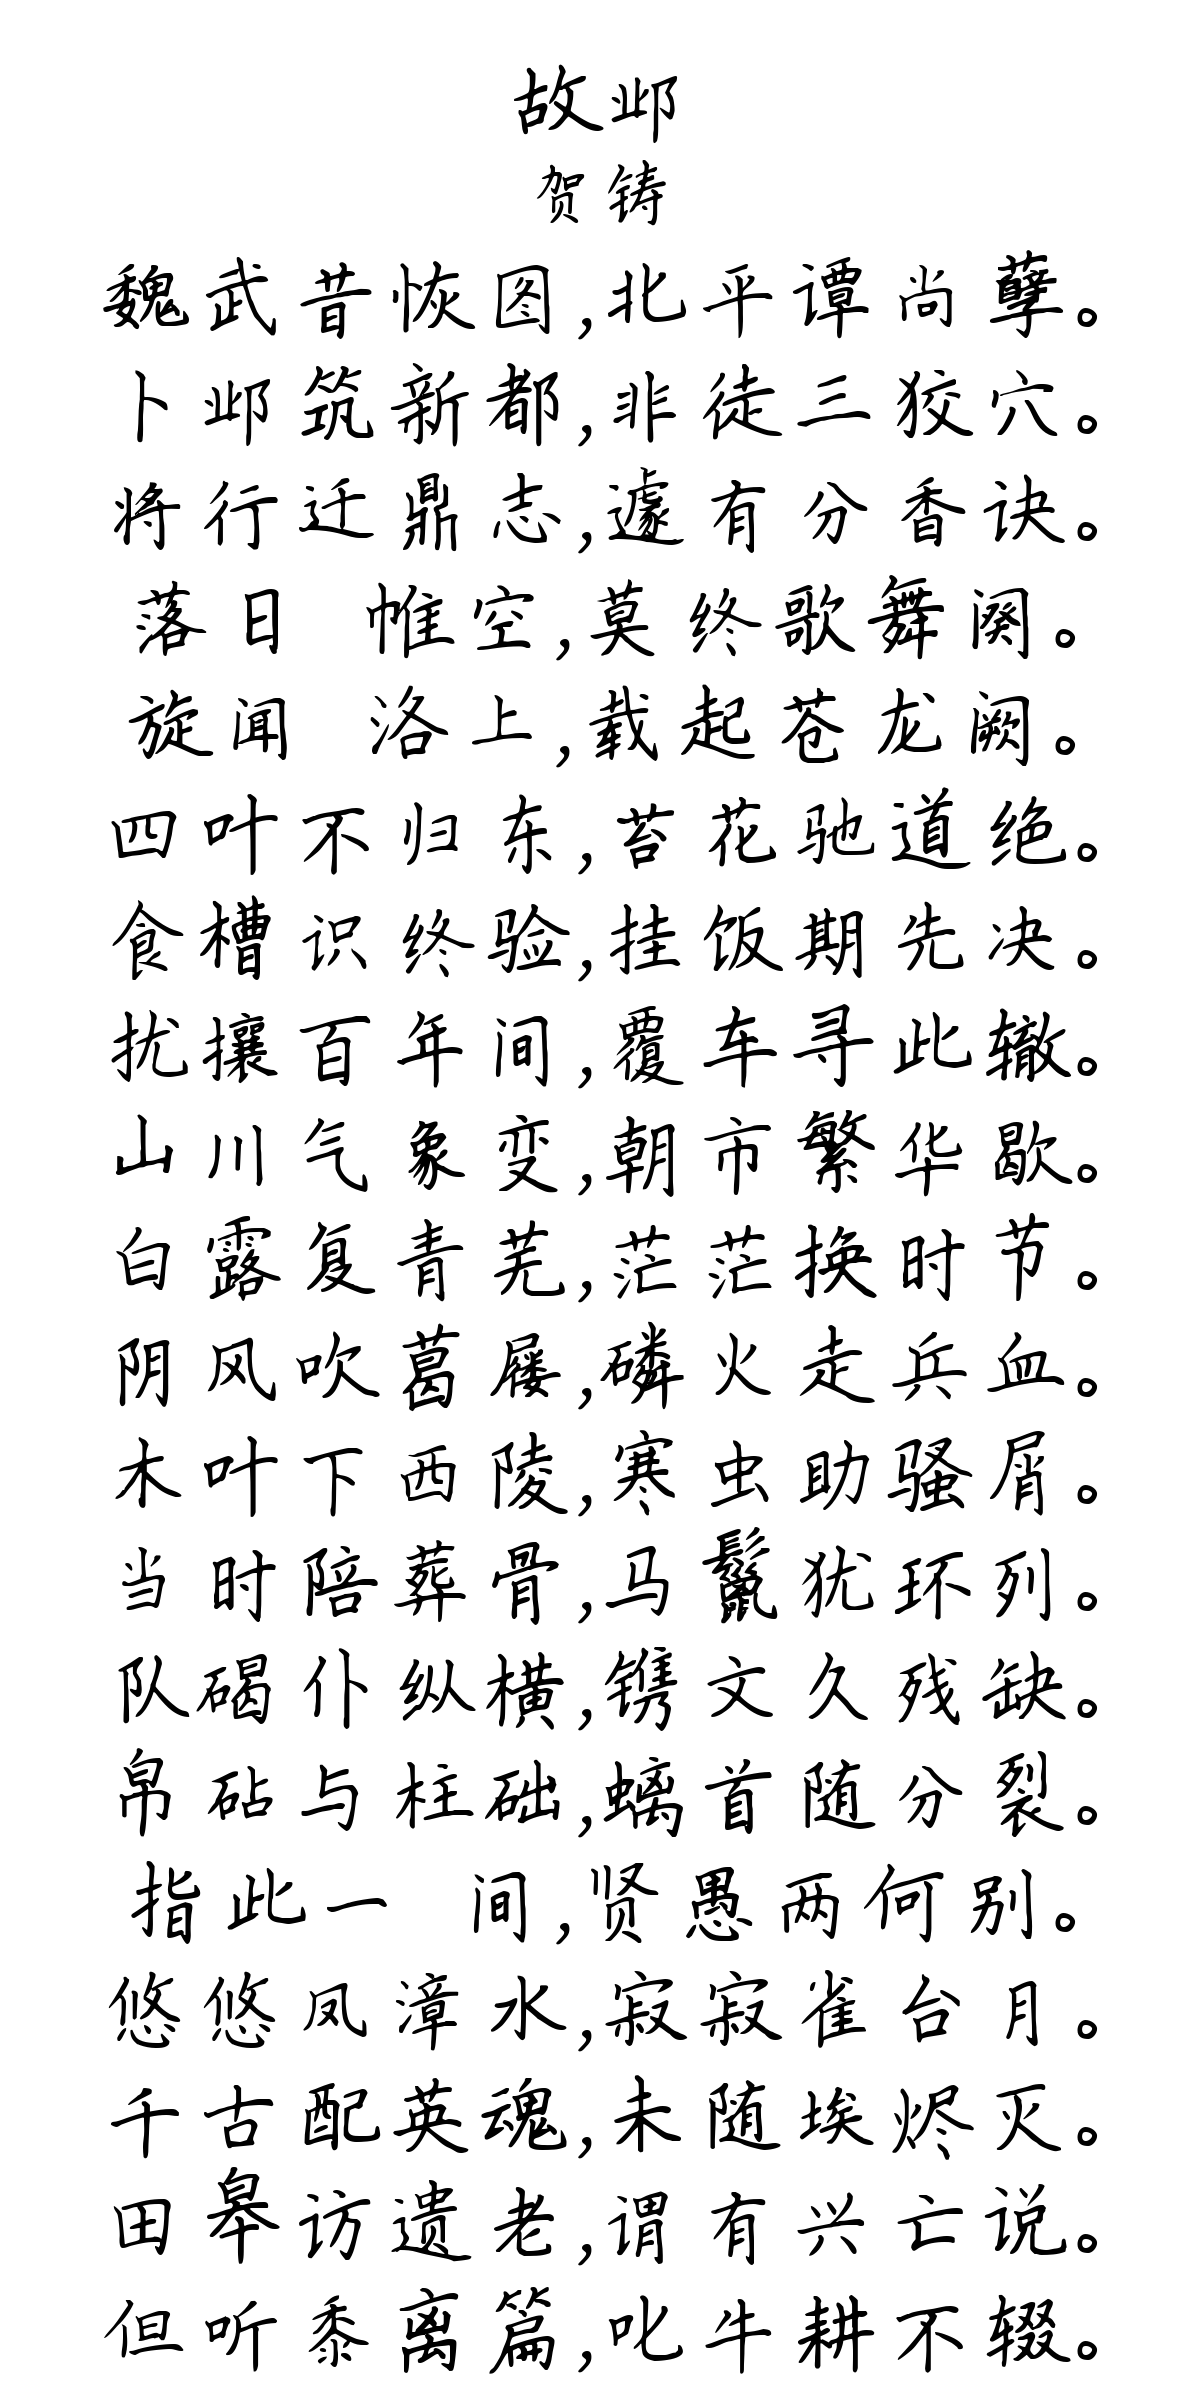 故邺
贺铸
魏武昔恢图,北平谭尚孽。
卜邺筑新都,非徒三狡穴。
将行迁鼎志,遽有分香诀。
落日 帷空,莫终歌舞阕。
旋闻 洛上,载起苍龙阙。
四叶不归东,苔花驰道绝。
食槽识终验,挂饭期先决。
扰攘百年间,覆车寻此辙。
山川气象变,朝市繁华歇。
白露复青芜,茫茫换时节。
阴风吹葛屦,磷火走兵血。
木叶下西陵,寒虫助骚屑。
当时陪葬骨,马鬣犹环列。
队碣仆纵横,镌文久残缺。
帛砧与柱础,螭首随分裂。
指此一 间,贤愚两何别。
悠悠凤漳水,寂寂雀台月。
千古配英魂,未随埃烬灭。
田皋访遗老,谓有兴亡说。
但听黍离篇,叱牛耕不辍。